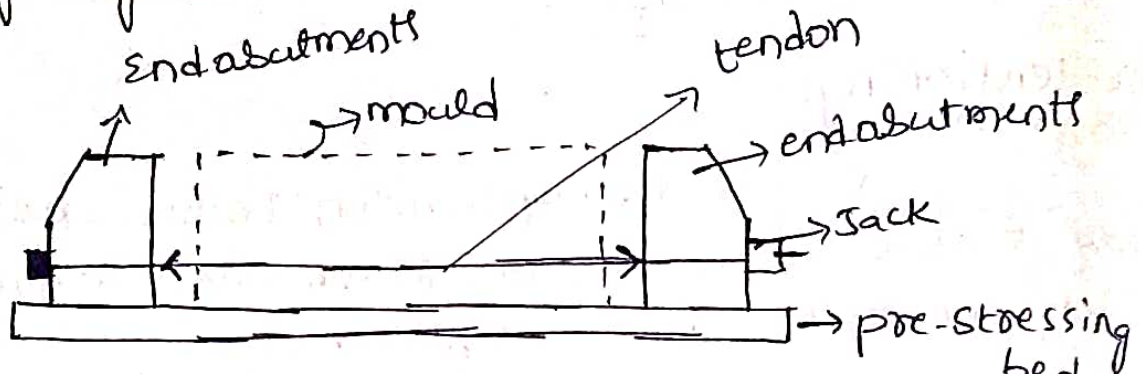 Endabutments
tendon
mould
endabutments
Jack
pre-stressing
bed